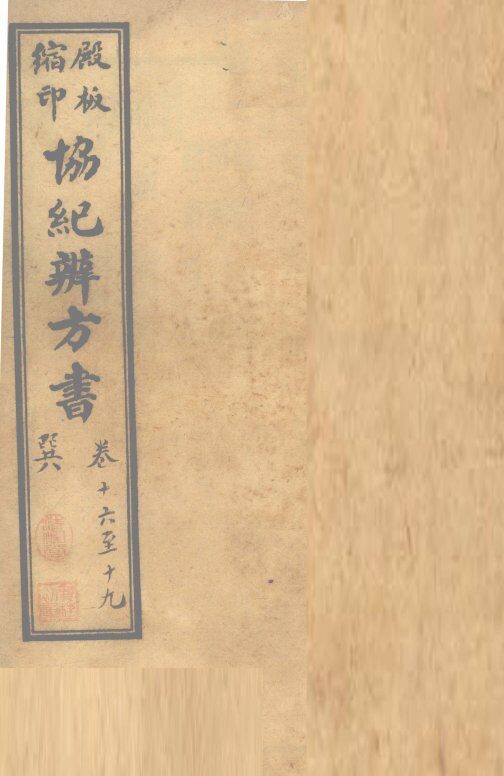 殿板
縮印
協紀辦方書
卷十六至十九
巽